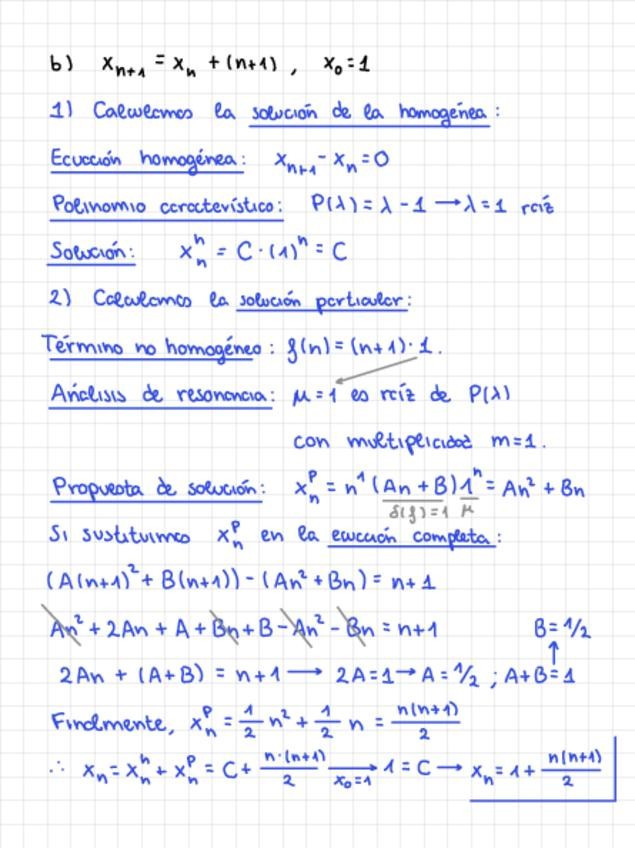 b) xₙ₊₁ = xₙ + (n+1) , x₀ = 1
1) Calculamos la solución de la homogénea :
Ecuación homogénea : xₙ₊₁ - xₙ = 0
Polinomio característico : P(λ) = λ - 1 → λ = 1 raíz
Solución : xₙʰ = C · (1)ⁿ = C
2) Calculamos la solución particular :
Término no homogéneo : f(n) = (n+1) · 1 .
Análisis de resonancia : μ = 1 es raíz de P(λ)
con multiplicidad m = 1 .
Propuesta de solución : xₙᵖ = n¹ (An + B) 1ⁿ = An² + Bn
δ(f) = 1 μ
Si sustituimos xₙᵖ en la ecuación completa :
(A(n+1)² + B(n+1)) - (An² + Bn) = n + 1
An² + 2An + A + Bn + B - An² - Bn = n+1 B = 1/2
↑
2An + (A+B) = n+1 → 2A = 1 → A = 1/2 ; A+B = 1
Finalmente, xₙᵖ = 1/2 n² + 1/2 n = n(n+1)/2
∴ xₙ = xₙʰ + xₙᵖ = C + n·(n+1)/2 → x₀=1 1 = C → xₙ = 1 + n(n+1)/2